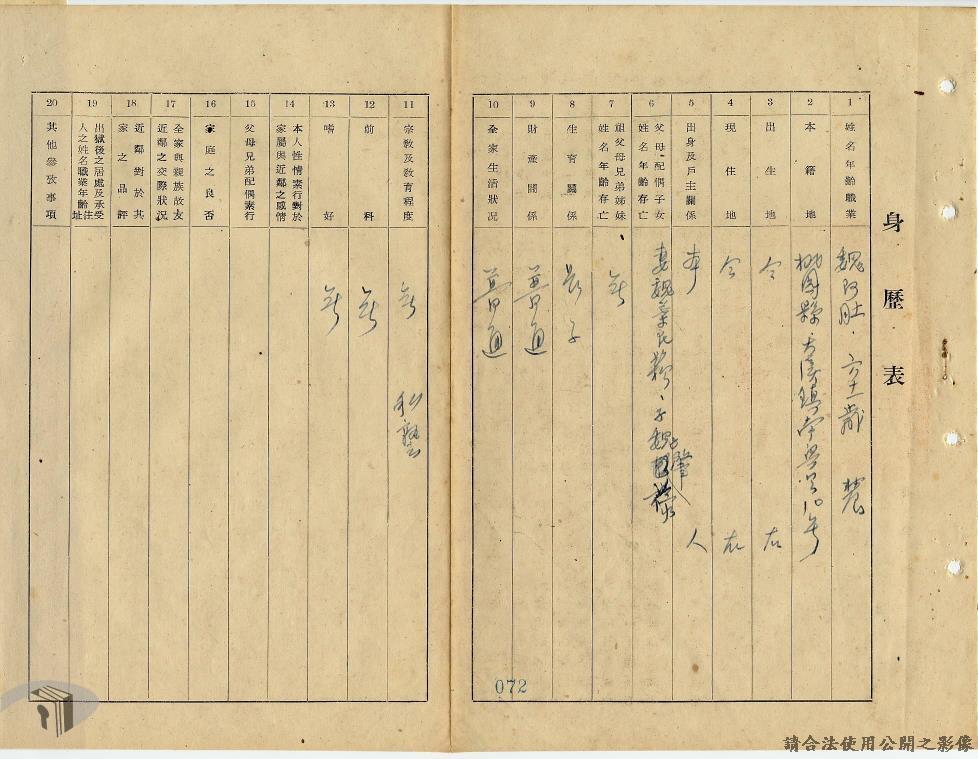 身歷表
1 姓名年齡職業 魏阿肚・六十二歲 農
2 本籍地 桃園縣・大溪鎮南興 10号
3 出生地 仝右
4 現住地 仝右
5 出身及戶主關係 本人
6 父母配偶子女姓名年齡存亡 妻魏葉氏 、子魏肇
7 祖父母兄弟姊妹姓名年齡存亡 無
8 生育關係 長子
9 財產關係 普通
10 全家生活狀況 普通
11 宗敎及敎育程度 無 私塾
12 前科 無
13 嗜好 無
14 本人性情素行對於家屬與近鄰之感情
15 父母兄弟配偶素行
16 家庭之良否
17 全家與親族故友近鄰之交際狀況
18 近鄰對於其家之品評
19 出獄後之居處及承受人之姓名職業年齡住址
20 其他參攷事項
072
請合法使用公開之影像